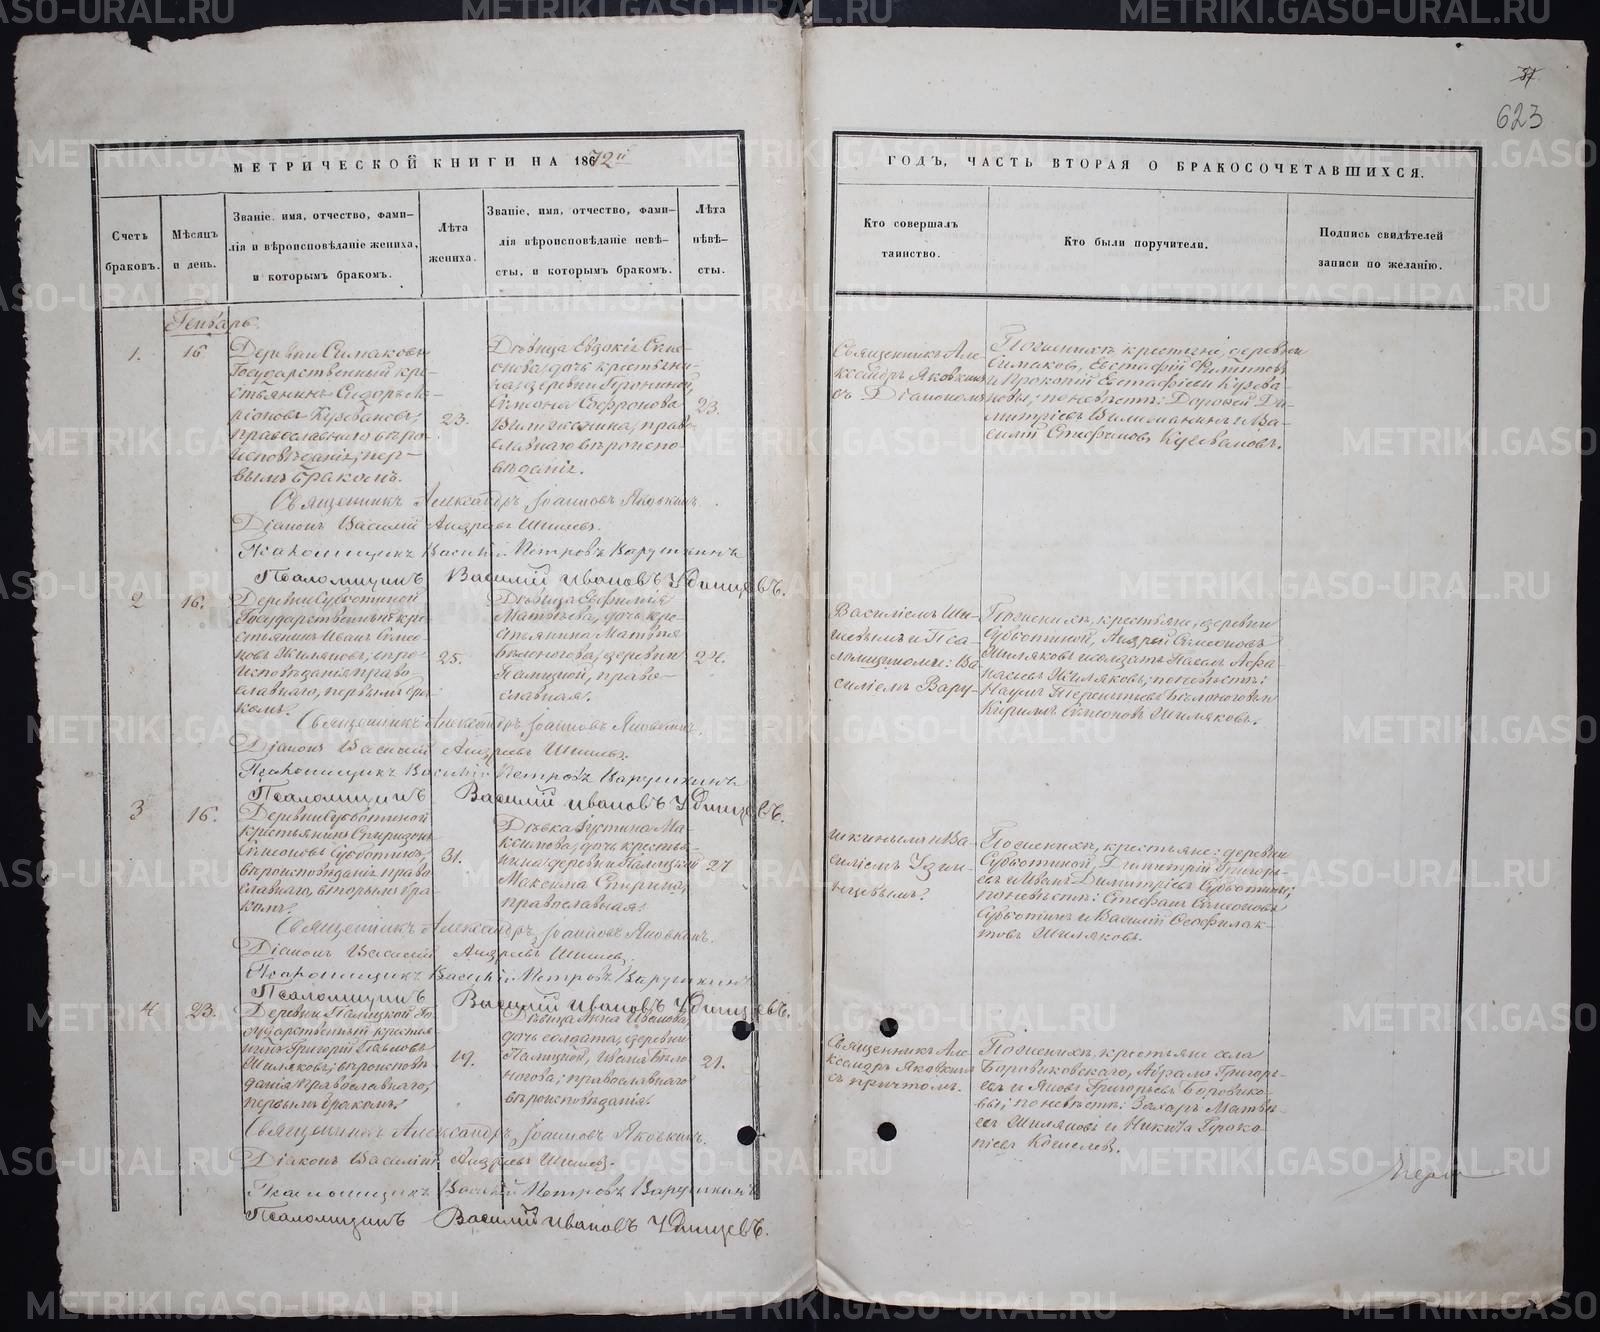 37
623
МЕТРИЧЕСКОЙ КНИГИ НА 1872й
ГОДЪ, ЧАСТЬ ВТОРАЯ О БРАКОСОЧЕТАВШИХСЯ.
Счетъ
браковъ.
Мѣсяцъ
и день.
Званіе, имя, отчество, фами-
лія и вѣроисповѣданіе жениха,
и которымъ бракомъ.
Лѣта
жениха.
Званіе, имя, отчество, фами-
лія вѣроисповѣданіе невѣ-
сты, и которымъ бракомъ.
Лѣта
невѣ-
сты.
Кто совершалъ
таинство.
Кто были поручители.
Подпись свидѣтелей
записи по желанію.
Генварь.
1.
16
Деревни Симаковы
Государственный кре-
стьянинъ Сидоръ
православнаго вѣро-
исповѣданія, пер-
вымъ бракомъ.
23.
Дѣвица Евдокія Симе-
онова, дочь крестьяни-
на, деревни
Симеона Софронова
право-
славнаго вѣроиспо-
вѣданія.
23.
Священникъ Але-
ксандръ Яковкинъ
съ Діакономъ
По женихѣ крестьяне, деревни
Симаков, Евстафій Филипповъ
и Прокопій Евстафіевы
по невѣстѣ: Дорофей Ди-
митріевъ и Ва-
силій Стефановъ
Священникъ Александръ Іоанновъ Яковкинъ.
Діаконъ Василій Андреевъ Шишевъ.
Псаломщикъ Василій Петровъ Варушкинъ
Псаломщикъ Василій Ивановъ Удинцевъ.
2
16.
Деревни Субботиной
Государственный кре-
стьянинъ Иванъ Симео-
новъ Шиляковъ, вѣро-
исповѣданія право-
славнаго, первымъ бра-
комъ.
25.
Дѣвица Евфимія
Матвѣева, дочь кре-
стьянина Матвѣя
Бѣлоногова, деревни
Палицкой, право-
славная.
24.
Василіемъ Ши-
шевымъ и Пса-
ломщиками: Ва-
силіемъ Вару-
По женихѣ, крестьяне, деревни
Субботиной, Андрей Симеоновъ
Шиляковъ и солдатъ Павелъ Афа-
насьевъ Шиляковъ; по невѣстѣ:
Наумъ Терентьевъ Бѣлоноговъ и
Кирилъ Симеоновъ Шиляковъ.
Священникъ Александръ Іоанновъ Яковкинъ.
Діаконъ Василій Андреевъ Шишевъ.
Псаломщикъ Василій Петровъ Варушкинъ
Псаломщикъ Василій Ивановъ Удинцевъ.
3
16.
Деревни Субботиной
крестьянинъ Спиридонъ
Симеоновъ Субботинъ,
вѣроисповѣданія право-
славнаго, вторымъ бра-
комъ.
31.
Дѣвка Іустина Ма-
ксимова, дочь крестья-
нина деревни Палицкой
Максима Спирина,
православная.
27
шкинымъ и Ва-
силіемъ Удин-
цевымъ.
По женихѣ, крестьяне: деревни
Субботиной, Димитрій Григорь-
евъ и Иванъ Димитріевъ Субботины;
по невѣстѣ: Стефанъ Симеоновъ
Субботинъ и Василій Феофилак-
товъ Шиляковъ.
Священникъ Александръ Іоанновъ Яковкинъ.
Діаконъ Василій Андреевъ Шишев.
Псаломщикъ Василій Петровъ Варушкинъ
Псаломщикъ Василій Ивановъ Удинцевъ.
4
23.
Деревни Палицкой Го-
сударственный крестья-
нинъ Григорій Павловъ
Шиляковъ; вѣроисповѣ-
данія православнаго,
первымъ бракомъ.
19.
Дѣвица Анна Иванова,
дочь солдата, деревни
Палицкой, Ивана Бѣло-
ногова; православнаго
вѣроисповѣданія.
21.
Священникъ Але-
ксандръ Яковкинъ
съ причтомъ.
По женихѣ, крестьяне села
Боровиковскаго, Абрамъ Григорь-
евъ и Яковъ Григорьевъ Боровико-
вы; по невѣстѣ: Захаръ Матвѣ-
евъ Шиляковъ и Никита Проко-
піевъ
Священникъ Александръ Іоанновъ Яковкинъ.
Діаконъ Василій Андреевъ Шишевъ.
Псаломщикъ Василій Петровъ Варушкинъ
Псаломщикъ Василій Ивановъ Удинцевъ.
METRIKI.GASO-URAL.RU